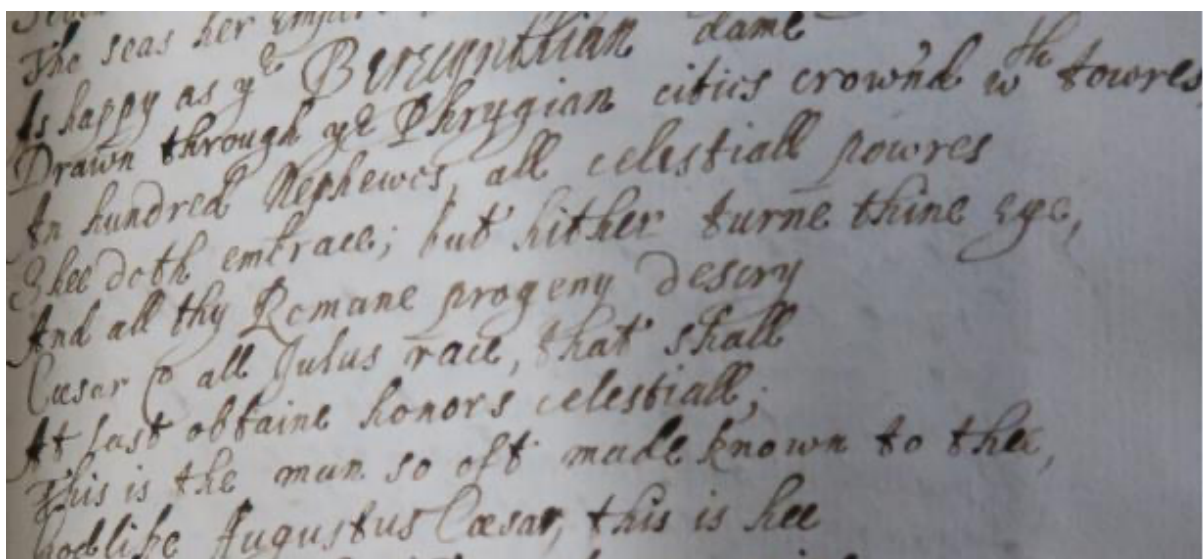 The seas her Empire
As happy as yᵉ Berecynthian dame
Drawn through yᵉ Phrygian cities crown'd wᵗʰ towres
An hundred Nephewes, all celestiall powres
Shee doth embrace; but hither turne thine eye,
And all thy Romane progeny descry
Cæsar & all Julus race, that shall
At last obtaine honors celestiall;
This is the man so oft made known to thee,
Godlike Augustus Cæsar, this is hee